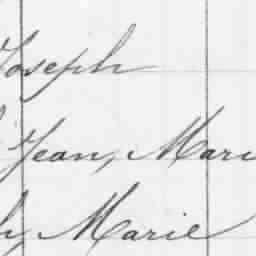 Joseph
Jean, Mari
h, Marie